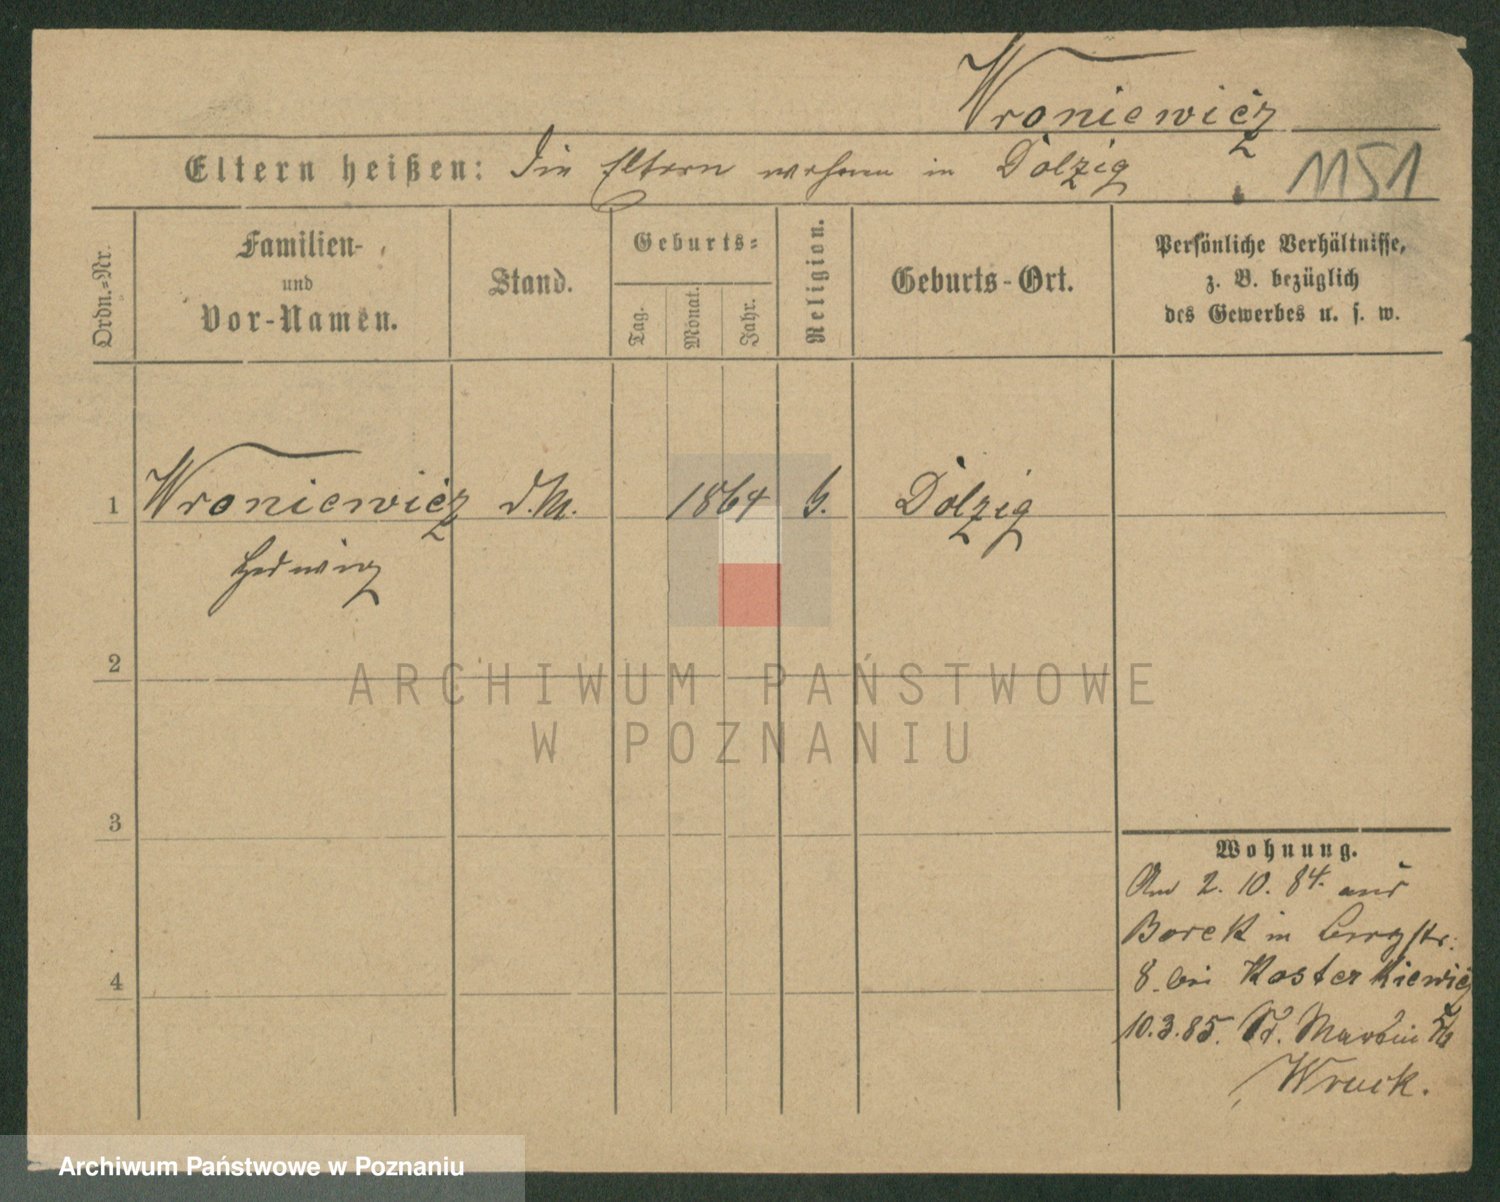 Wroniewicz
Eltern heißen: Die Eltern wohnen in Dolzig
1151
Ordn.-Nr.
Familien-
und
Vor-Namen.
Stand.
Geburts-
Tag.
Monat.
Jahr.
Religion.
Geburts-Ort.
Persönliche Verhältnisse,
z. B. bezüglich
des Gewerbes u. s. w.
1 Wroniewicz d.M. 1864 Dolzig
Hedwig
2
3
4
Wohnung.
Am 2. 10. 84. aus
Borek in Bergstr.
8. bei Kosterkiewicz
10.3.85. St. Martin
Wruck.
ARCHIWUM PAŃSTWOWE
W POZNANIU
Archiwum Państwowe w Poznaniu